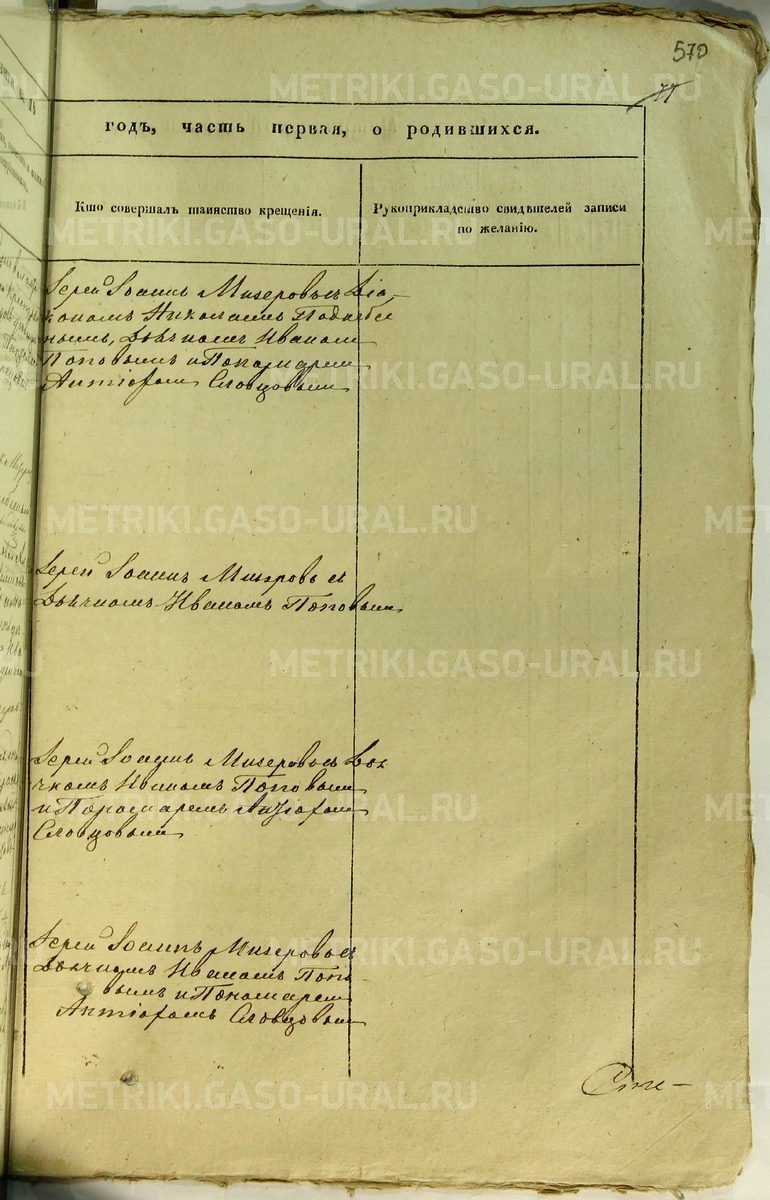 570
77
METRIKI.GASO-URAL.RU
годъ, часть первая, о родившихся.
Кто совершалъ таинство крещенія.
Рукоприкладство свидѣтелей записи
по желанію.
Іерей Іоаннъ Мизеровъ съ Діа-
кономъ Николаемъ Поднебес
нымъ, Дьячкомъ Иваномъ
Поповымъ и Пономаремъ
Словцовымъ
Іерей Іоаннъ Мизеровъ съ
Дьячкомъ Иваномъ Поповымъ
Іерей Іоаннъ Мизеровъ съ Дья
чкомъ Иваномъ Поповымъ
и Пономаремъ
Словцовымъ
Іерей Іоаннъ Мизеровъ съ
Дьячкомъ Иваномъ Попо-
вымъ и Пономаремъ
Словцовымъ